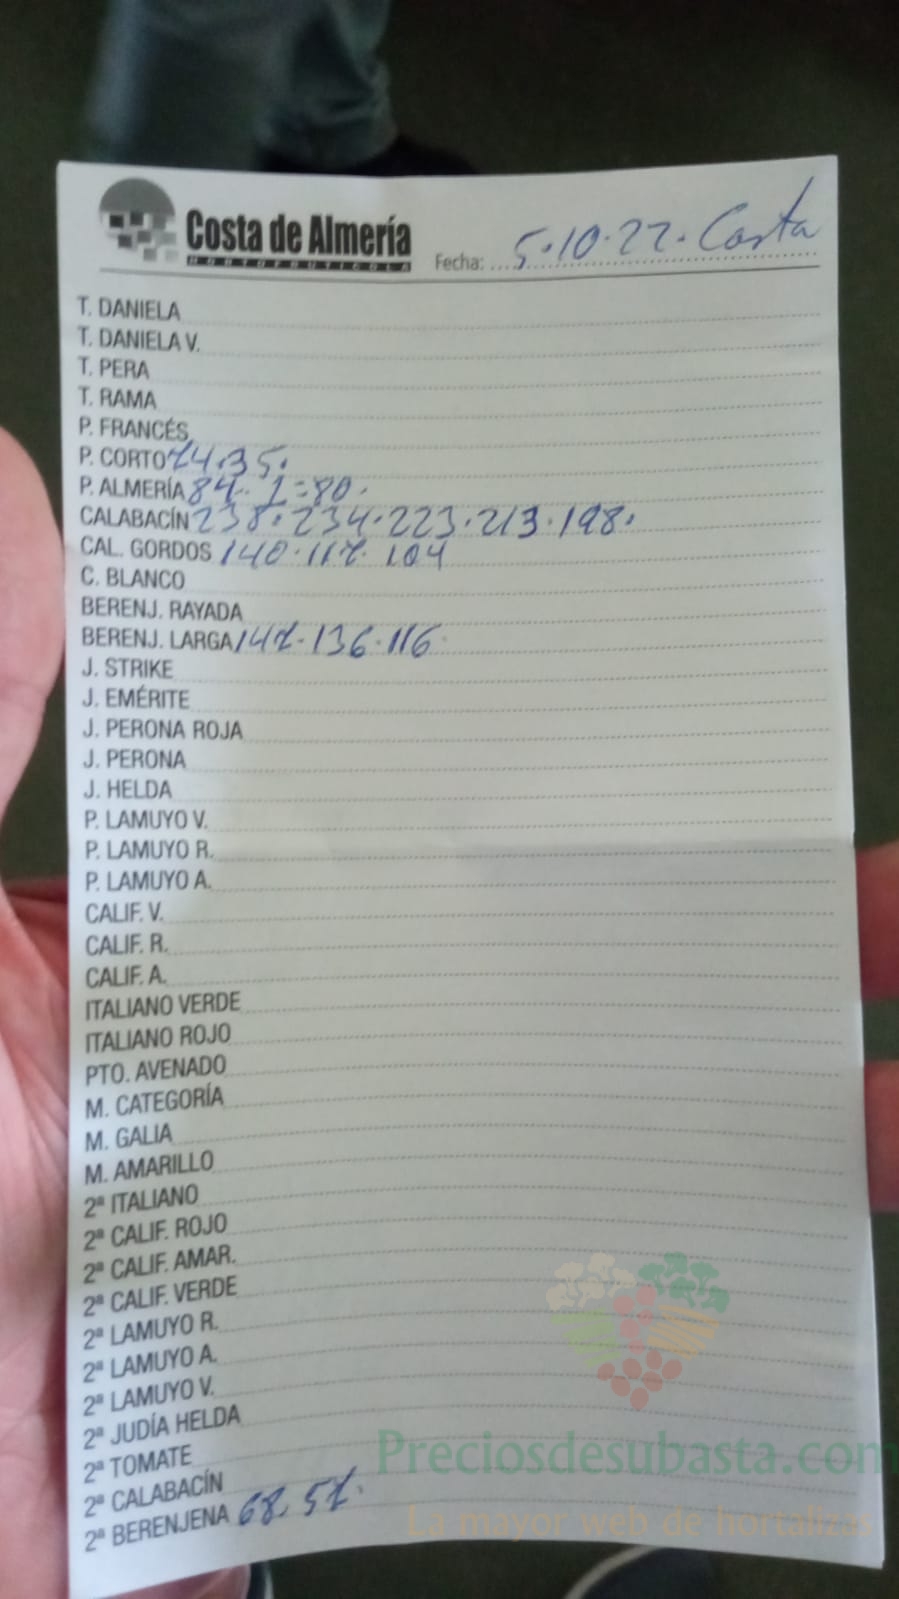 Costa de Almería
HORTOFRUTICOLA
Fecha: 5·10·22· Costa
T. DANIELA
T. DANIELA V.
T. PERA
T. RAMA
P. FRANCÉS
P. CORTO 74·35·
P. ALMERÍA 84· 1=80·
CALABACÍN 238· 234·223·213·198·
CAL. GORDOS 140·117·104
C. BLANCO
BERENJ. RAYADA
BERENJ. LARGA 147·136·116
J. STRIKE
J. EMÉRITE
J. PERONA ROJA
J. PERONA
J. HELDA
P. LAMUYO V.
P. LAMUYO R.
P. LAMUYO A.
CALIF. V.
CALIF. R.
CALIF. A.
ITALIANO VERDE
ITALIANO ROJO
PTO. AVENADO
M. CATEGORÍA
M. GALIA
M. AMARILLO
2ª ITALIANO
2ª CALIF. ROJO
2ª CALIF. AMAR.
2ª CALIF. VERDE
2ª LAMUYO R.
2ª LAMUYO A.
2ª LAMUYO V.
2ª JUDÍA HELDA
2ª TOMATE
2ª CALABACÍN
2ª BERENJENA 68·57·
Preciosdesubasta.com
La mayor web de hortalizas